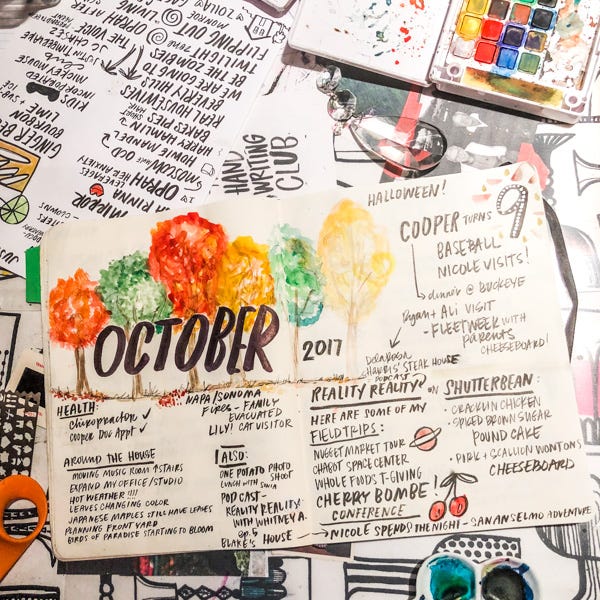 HALLOWEEN!
COOPER TURNS 9
BASEBALL
NICOLE VISITS!
dinner @ BUCKEYE
Ryan + Ali VISIT
- FLEET WEEK WITH
parents
CHEESEBOARD!
HARRIS' STEAK HOUSE
PODCAST
OCTOBER
2017
HEALTH:
Chiropractor ✓
Cooper Doc Appt ✓
NAPA/SONOMA
FIRES - FAMILY
EVACUATED
LILY! CAT VISITOR
AROUND THE HOUSE
MOVING MUSIC ROOM
EXPAND MY OFFICE/STUDIO
HOT WEATHER !!!!
LEAVES CHANGING COLOR
JAPANESE MAPLES STILL HAVE LEAVES
PLANNING FRONT YARD
BIRDS OF PARADISE STARTING TO BLOOM
ALSO:
ONE POTATO PHOTO SHOOT
LUNCH WITH
PODCAST-
REALITY REALITY
WITH WHITNEY A.
ep. 5
BLAKE'S HOUSE
REALITY REALITY
HERE ARE SOME OF MY
FIELD TRIPS:
NUGGET MARKET TOUR
CHABOT SPACE CENTER
WHOLE FOODS T-GIVING
CHERRY BOMBE!
CONFERENCE
NICOLE SPENDS THE NIGHT - SAN ANSELMO ADVENTURE
ON SHUTTERBEAN:
• CRACKLIN CHICKEN
• SPICED BROWN SUGAR
POUND CAKE
• PORK + SCALLION WONTONS
CHEESEBOARD
HAND
WRITING
CLUB
ZOOLA
MONROE
FLIPPING OUT
TWILIGHT
BE THE ZOMBIES
WE ARE GOING TO
BEVERLY HILLS
REAL HOUSEWIVES
OPRAH AFTER
THE VOICE
JC CHASEZ
JUSTIN TIMBERLAKE
MICKEY MOUSE
INCORPORATED
KIDS
BAKERSFIELD
HARRY HAMLIN
HOWIE MANDEL
OCD
ANXIETY
OPRAH
LEVERAGES
RINNA
MIRROR
GINGER
BOURBON
LIME
ICE
CLOWNS